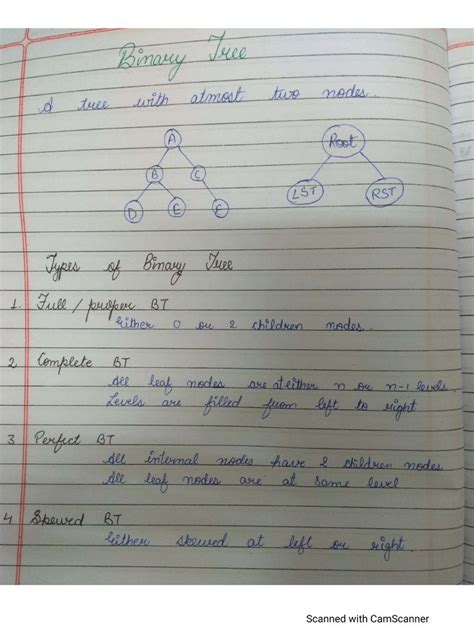 Binary Tree
A tree with atmost two nodes.
A
Root
B
C
LST
RST
D
E
F
Types of Binary Tree
1. Full / proper BT
Either 0 or 2 children nodes.
2 Complete BT
All leaf nodes are at either n or n-1 levels
Levels are filled from left to right
3 Perfect BT
All internal nodes have 2 children nodes
All leaf nodes are at same level
4 Skewed BT
Either skewed at left or right.
Scanned with CamScanner